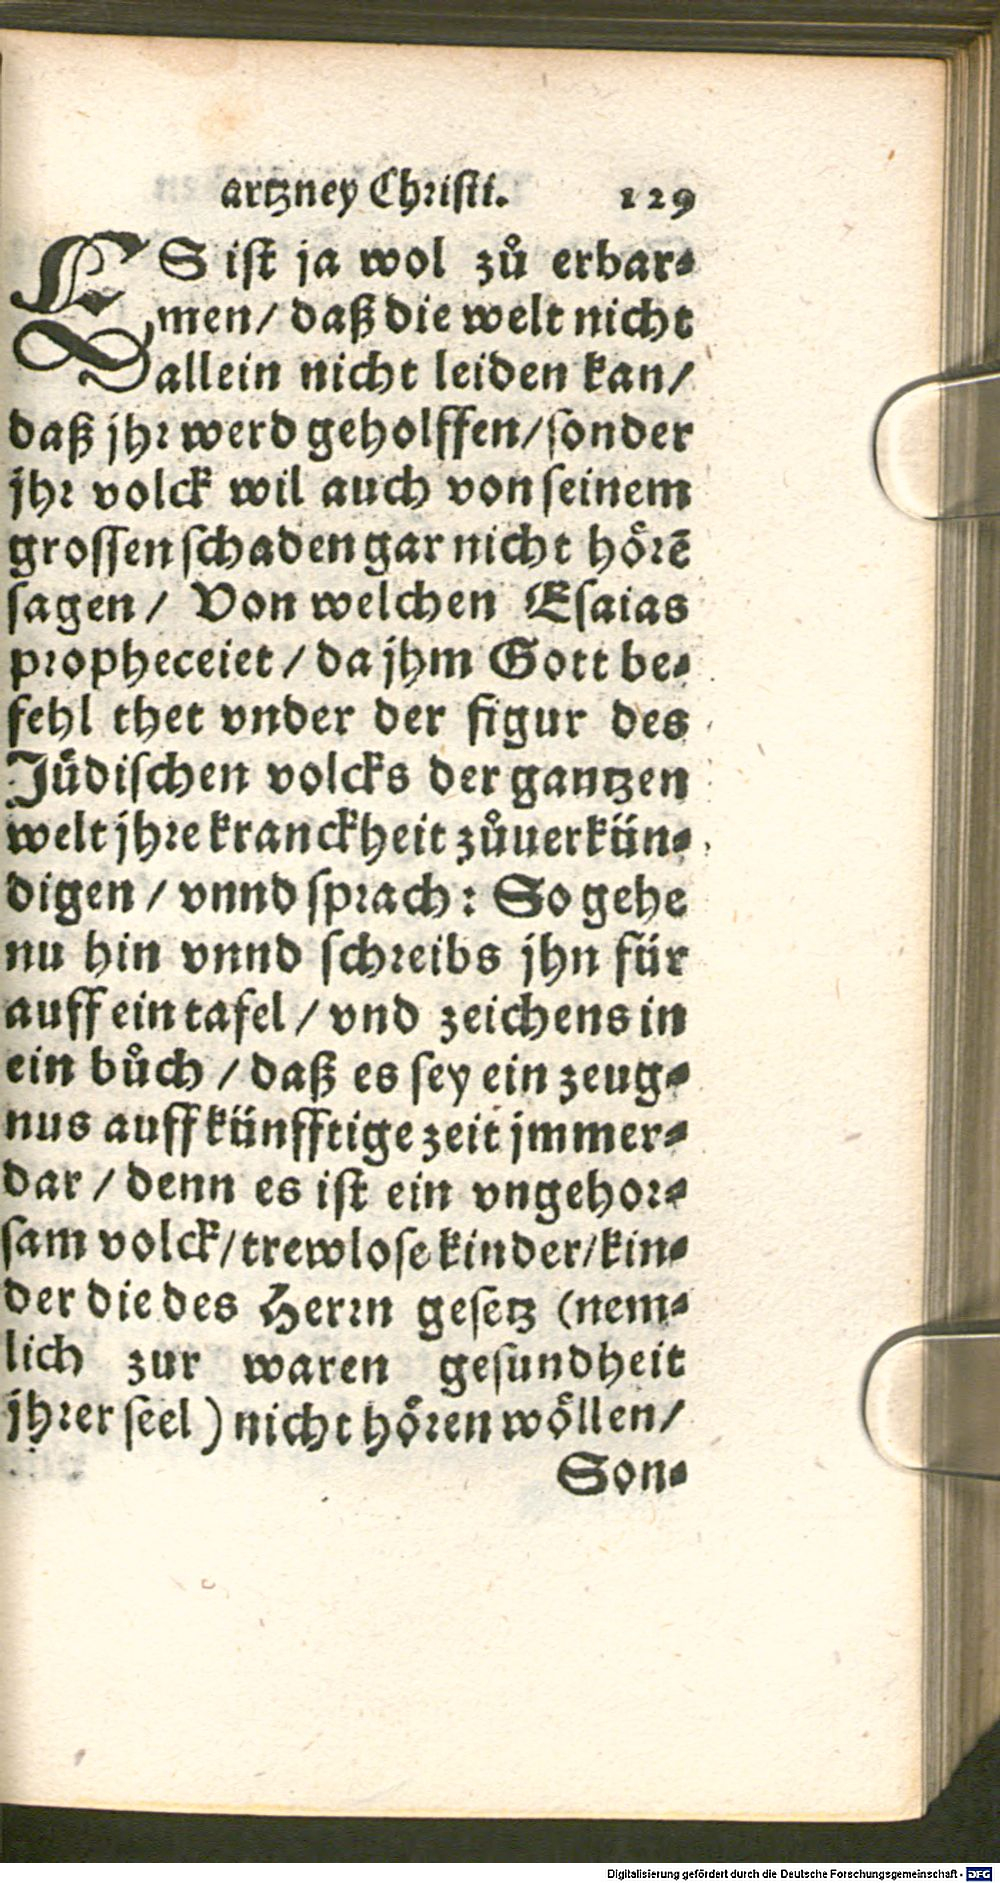 artzney Christi. 129
ES ist ja wol zů erbar-
men / daß die welt nicht
allein nicht leiden kan /
daß jhr werd geholffen / sonder
jhr volck wil auch von seinem
grossen schaden gar nicht hoͤrẽ
sagen / Von welchen Esaias
propheceiet / da jhm Gott be-
fehl thet vnder der figur des
Juͤdischen volcks der gantzen
welt jhre kranckheit zůuerkün-
digen / vnnd sprach: So gehe
nu hin vnnd schreibs jhn für
auff ein tafel / vnd zeichens in
ein bůch / daß es sey ein zeug-
nus auff künfftige zeit jmmer-
dar / denn es ist ein vngehor-
sam volck / trewlose kinder / kin-
der die des Herrn gesetz (nem-
lich zur waren gesundheit
jhrer seel) nicht hoͤren woͤllen /
Son-
Digitalisierung gefördert durch die Deutsche Forschungsgemeinschaft - DFG